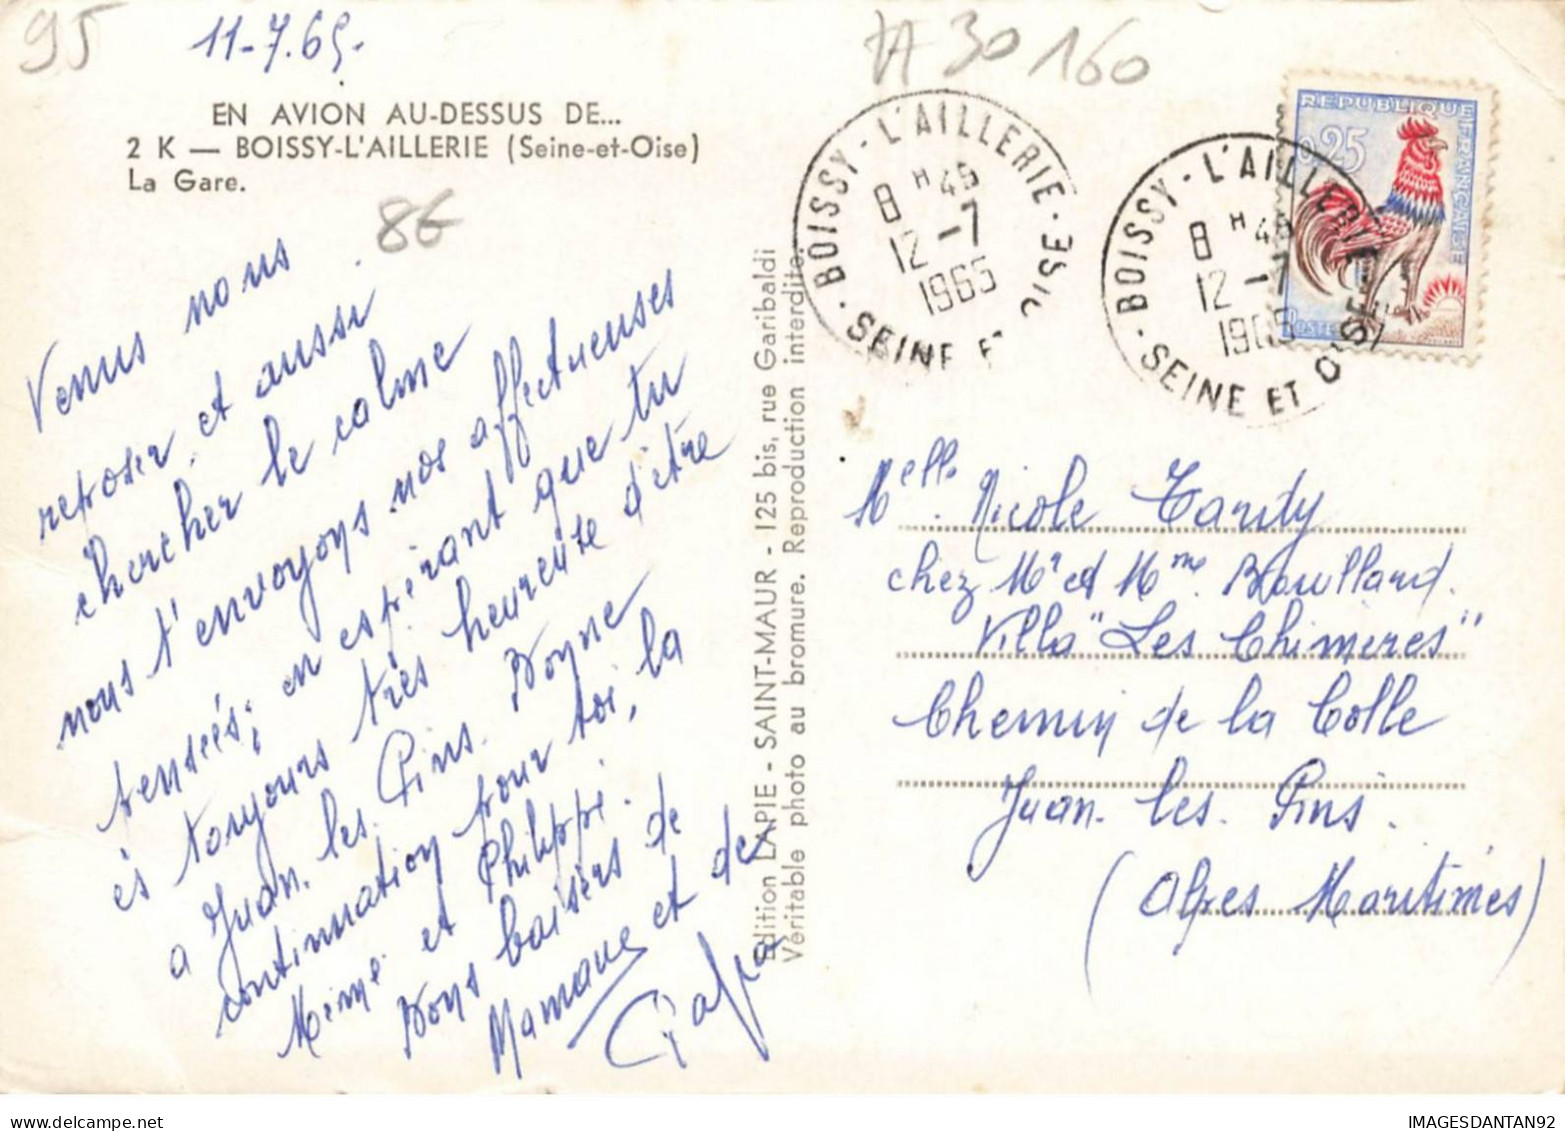 95
11-7.65.
AA 30160
EN AVION AU-DESSUS DE...
2 K — BOISSY-L'AILLERIE (Seine-et-Oise)
La Gare.
86
Venus nous
reposer et aussi
chercher le calme
nous t'envoyons nos affectueuses
pensées; en espérant que tu
és toujours très heureuse d'être
a Juan. les. Pins. Bonne
continuation pour toi, la
Mémé et Philippe.
Bons baisers de
Mamane et de
Papa
Edition LAPIE - SAINT-MAUR - 125 bis, rue Garibaldi
Véritable photo au bromure. Reproduction interdite.
BOISSY-L'AILLERIE
8 H 45
12 -7
1965
SEINE ET OISE
BOISSY-L'AILLERIE
8 H 45
12 -7
1965
SEINE ET OISE
REPUBLIQUE FRANÇAISE
0,25
POSTES
Melle. Nicole Tardy
chez Mr et Mme
Villa "Les Chimères"
Chemin de la Colle
Juan. les. Pins.
(Alpes Maritimes)
IMAGESDANTAN92